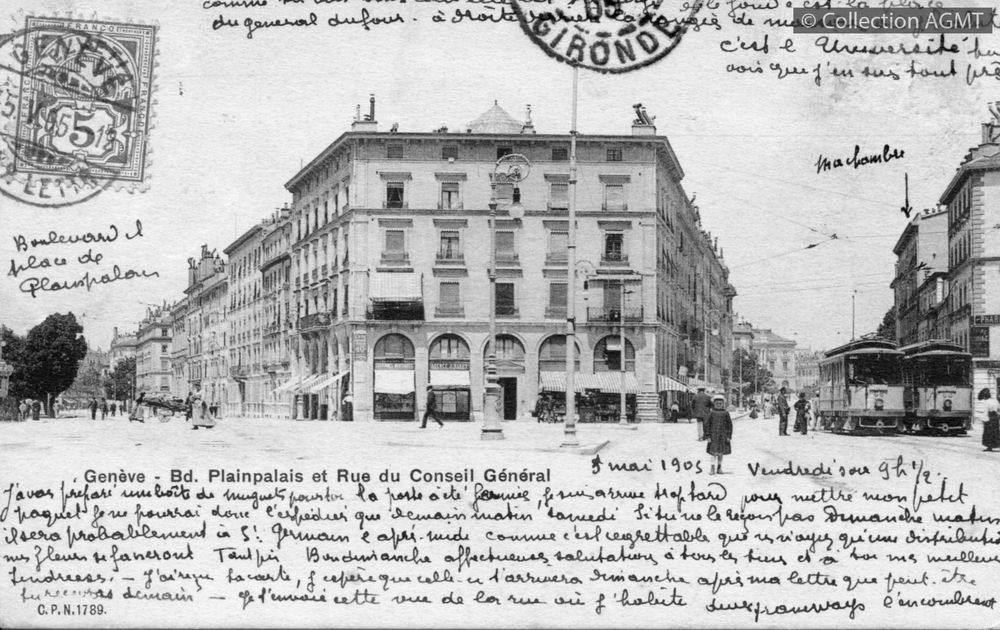 © Collection AGMT
du général dufour. à droite
GIRONDE
c'est l'Université
vois que j'en suis tout près
FRANCO
5
GENÈVE
LETTR
ma chambre
Boulevard et
place de
Plainpalais
PHAR
Genève - Bd. Plainpalais et Rue du Conseil Général
5 mai 1905 Vendredi soir 9h 1/2
J'avais préparé une boîte de muguets pour toi la poste a été fermée, je suis arrivé trop tard pour mettre mon petit
paquet je ne pourrai donc l'expédier que demain matin, samedi Si tu ne le reçois pas Dimanche matin
il sera probablement à St Germain l'après-midi comme c'est regrettable que vs n'ayez qu'une distribution
mes fleurs se faneront Tant pis Bon dimanche affectueuses salutations à tous les tiens et à toi mes meilleures
tendresses. — J'ai reçu ta carte, j'espère que celle-ci t'arrivera dimanche après ma lettre que peut-être
tu recevras demain — Je t'envoie cette vue de la rue où j'habite deux tramways l'encombrent
C.P.N. 1789.